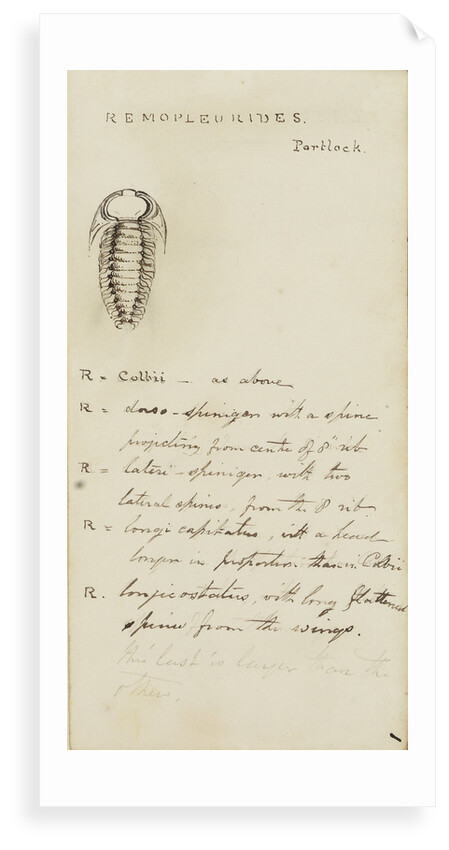 REMOPLEURIDES.
Portlock.
R = Colbii - as above
R = dorso-spiniger with a spine
projecting from centre of 8" rib
R = lateri-spiniger, with two
lateral spines, from the 8 rib
R = longi capitatus, with a head
longer in proportion than in Colbii
R. longicostatus, with long flattened
spines from the wings.
this last is larger than the
others.